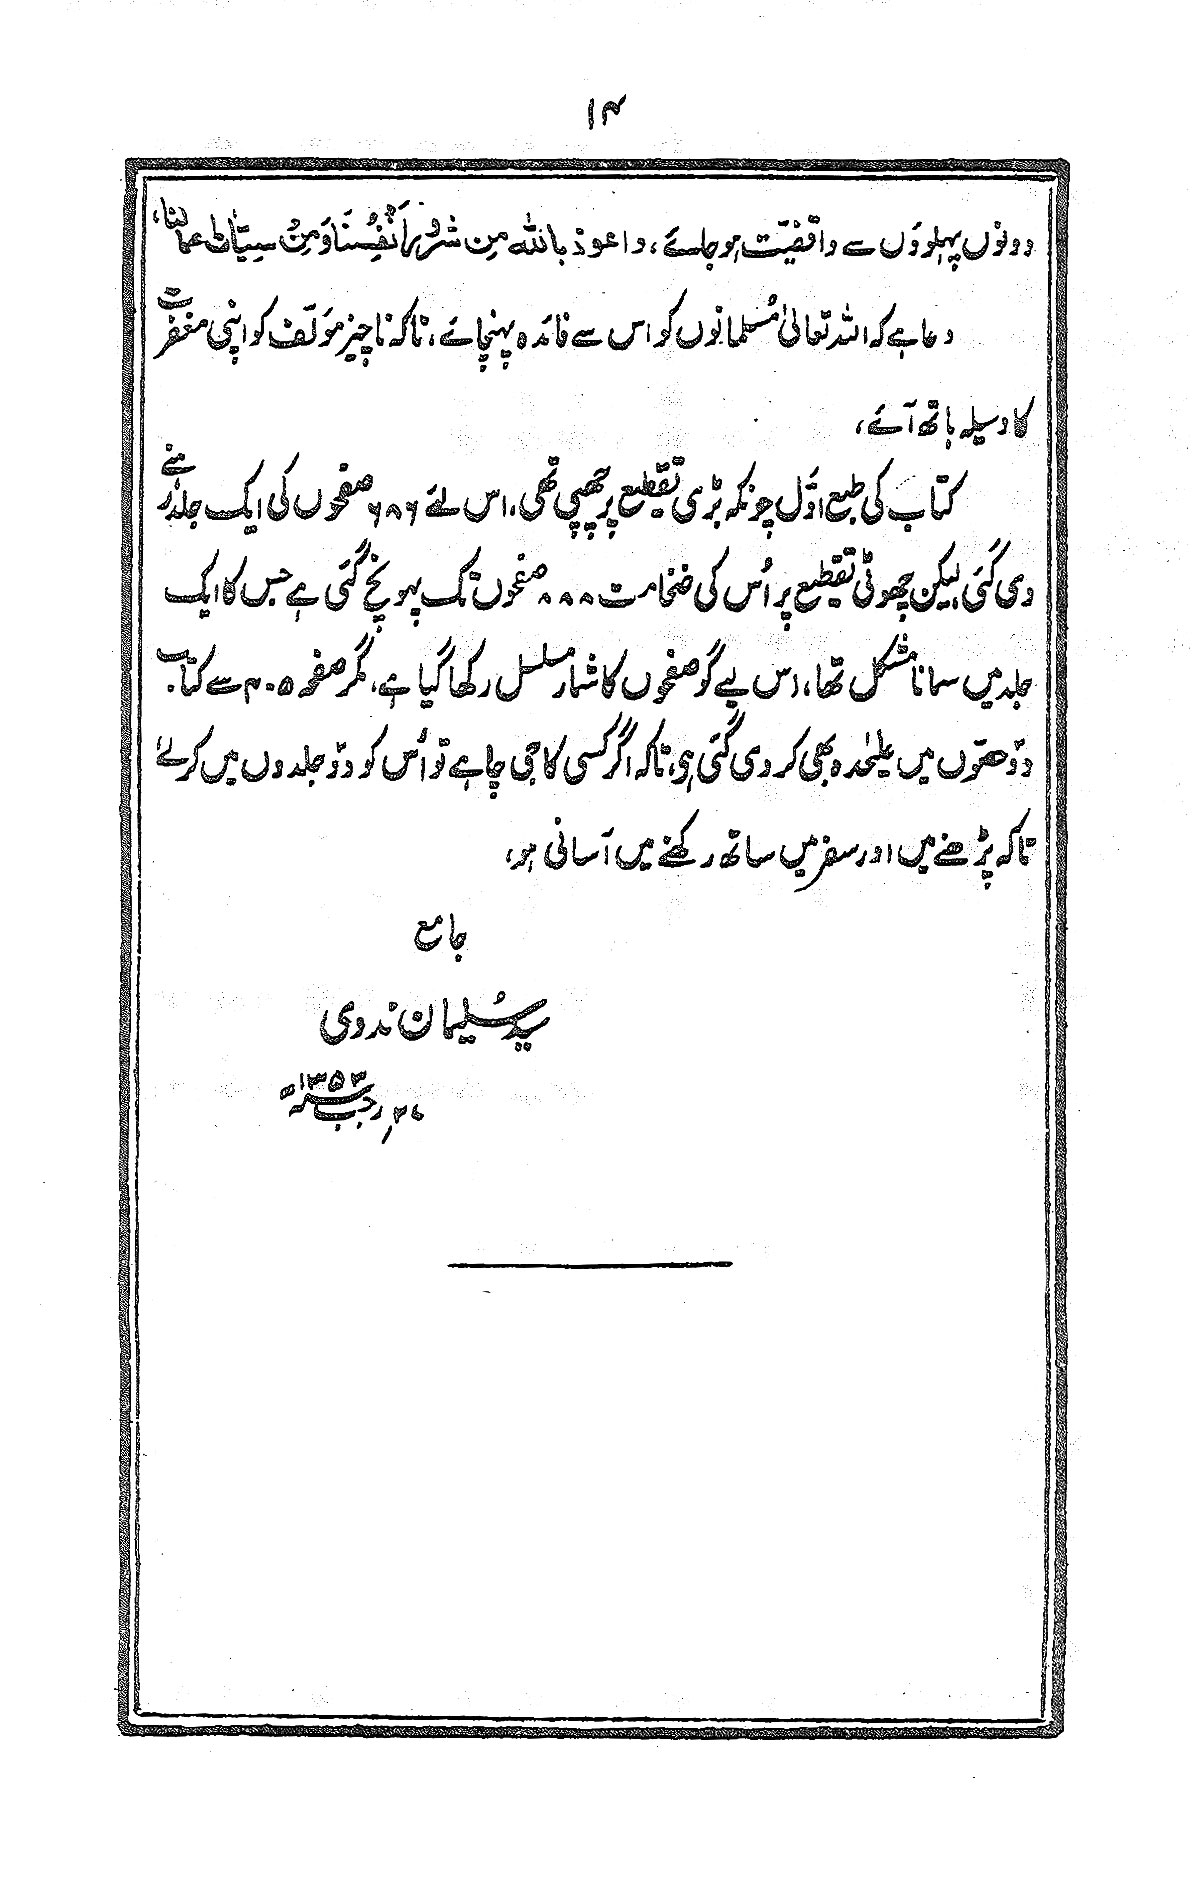 ۱۴
دونوں پہلوؤں سے واقفیت ہوجائے، واعوذ باللہ من شرور اَنْفُسِنَا وَمِنْ سیّاٰت اعمالنا،
دعا ہے کہ اللہ تعالیٰ مُسلمانوں کو اس سے فائدہ پہنچائے، تاکہ ناچیز مؤلف کو اپنی مغفرت
کا وسیلہ ہاتھ آئے،
کتاب کی طبع اوّل چونکہ بڑی تقطیع پر چھپی تھی، اس لئے ۶۸۶ صفحوں کی ایک جلد رہنے
دی گئی، لیکن چھوٹی تقطیع پر اُس کی ضخامت ۸۸۸ صفحوں تک پہونچ گئی ہے جس کا ایک
جلد میں سمانا مشکل تھا، اس لیے گو صفحوں کا شمار مسلسل رکھا گیا ہے، مگر صفحہ ۴۰۵ سے کتاب
دوّ حصّوں میں علیٰحدہ بھی کر دی گئی ہی، تاکہ اگر کسی کا جی چاہے تو اُس کو دوّ جلدوں میں کرلے
تاکہ پڑھنے میں اور سفر میں ساتھ رکھنے میں آسانی ہو،
جامع
سید سُلیمان ندوی
۲۷ رجب ۱۳۵۳ھ